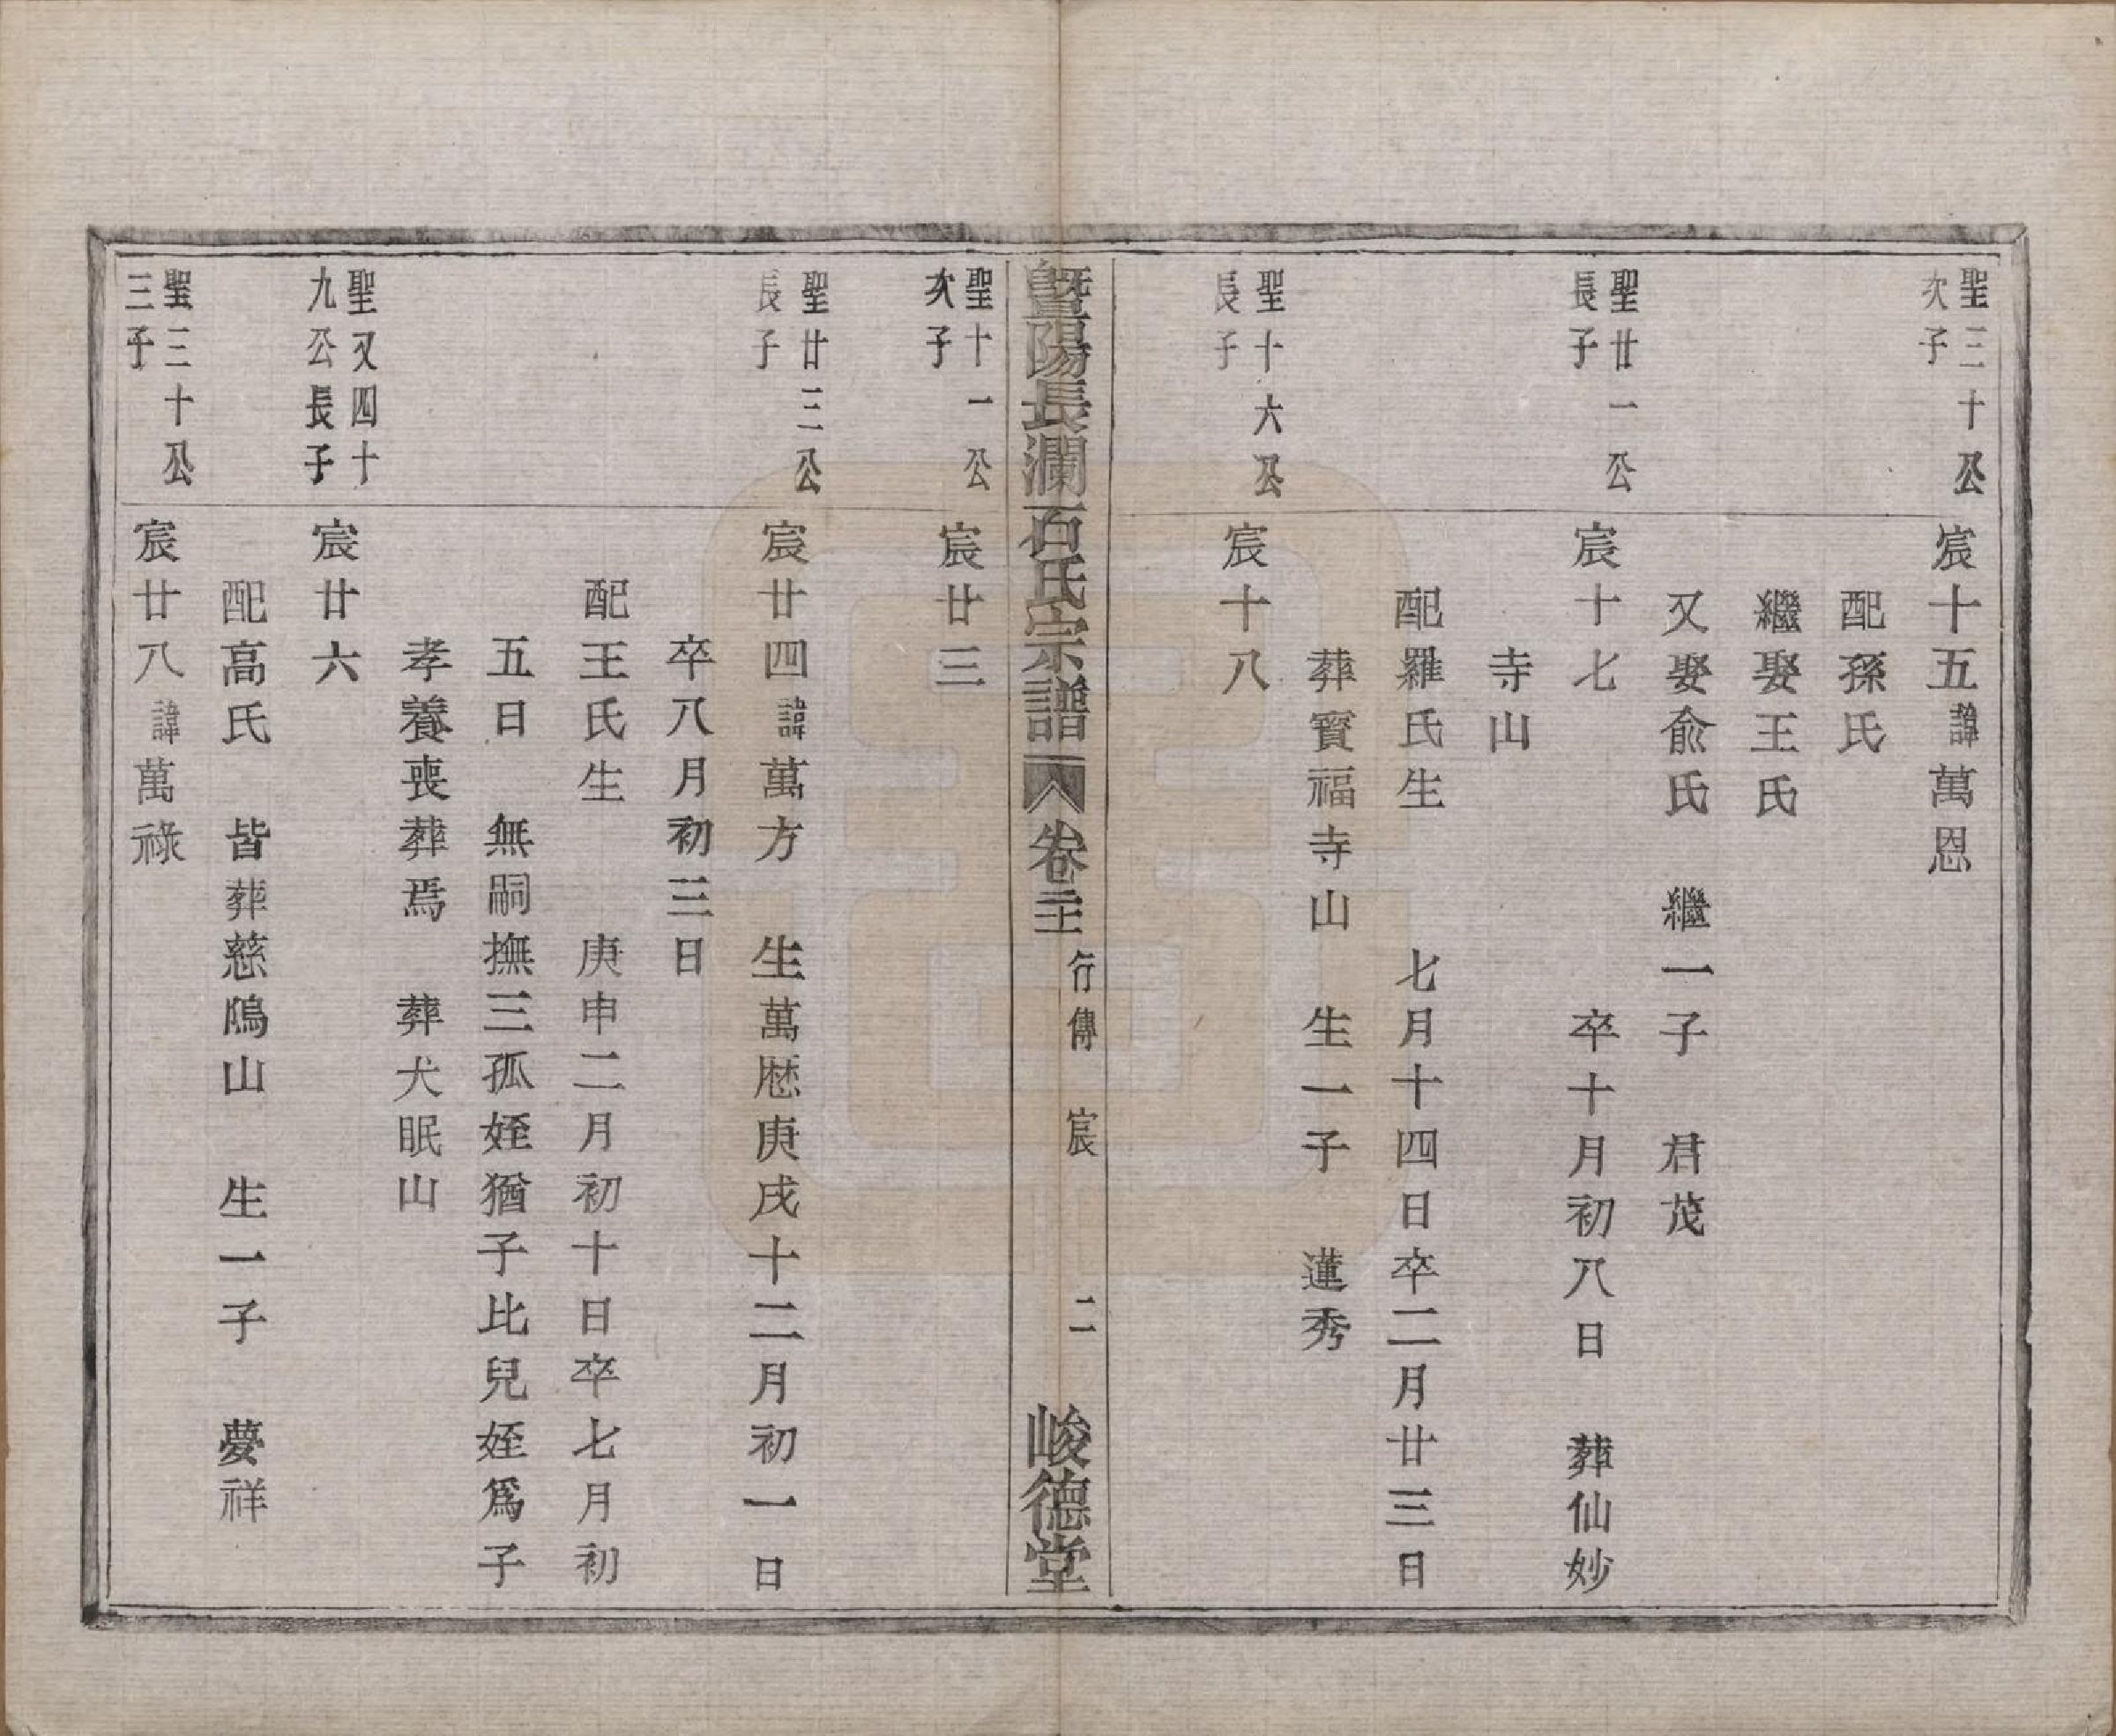 聖三十公
次子
宸十五諱萬恩
配孫氏
繼娶王氏
又娶俞氏 繼一子 君茂
聖廿一公
長子
宸十七 卒十月初八日 葬仙妙
寺山
配羅氏生 七月十四日卒二月廿三日
葬寶福寺山 生一子 蓮秀
聖十六公
長子
宸十八
暨陽長瀾石氏宗譜 卷二十 行傳 宸 二 峻德堂
聖十一公
次子
宸廿三
聖廿三公
長子
宸廿四諱萬方 生萬厯庚戌十二月初一日
卒八月初三日
配王氏生 庚申二月初十日卒七月初
五日 無嗣撫三孤姪猶子比兒姪爲子
孝養喪葬焉 葬犬眠山
聖又四十
九公長子
宸廿六
配高氏 皆葬慈隖山 生一子 夢祥
聖三十公
三子
宸廿八諱萬祿